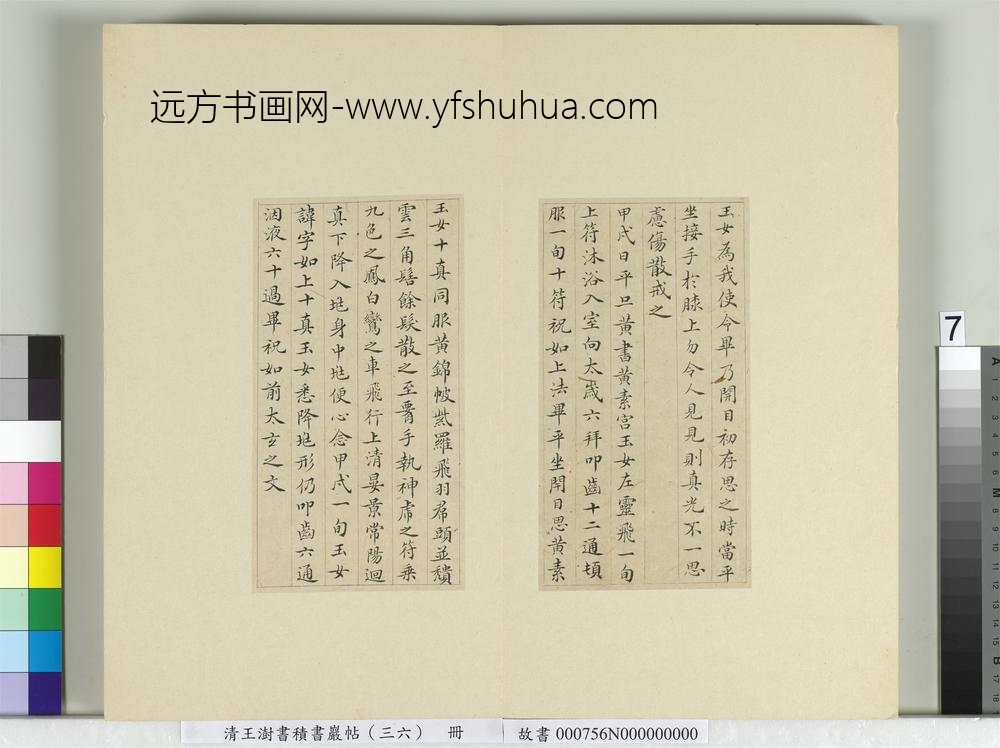 远方书画网-www.yfshuhua.com
玉女為我使令畢乃開目初存思之時當平
坐接手於膝上勿令人見見則真光不一思
慮傷散戒之
甲戌日平旦黃書黃素宮玉女左靈飛一旬
上符沐浴入室向太歲六拜叩齒十二通頓
服一旬十符祝如上法畢平坐閉目思黃素
玉女十真同服黃錦帔紫羅飛羽帬頭並穨
雲三角髻餘髮散之至腰手執神虎之符乘
九色之鳳白鸞之車飛行上清晏景常陽迴
真下降入兆身中兆便心念甲戌一旬玉女
諱字如上十真玉女悉降兆形仍叩齒六通
咽液六十過畢祝如前太玄之文
7
清王澍書積書巖帖（三六） 冊
故書 000756N000000000